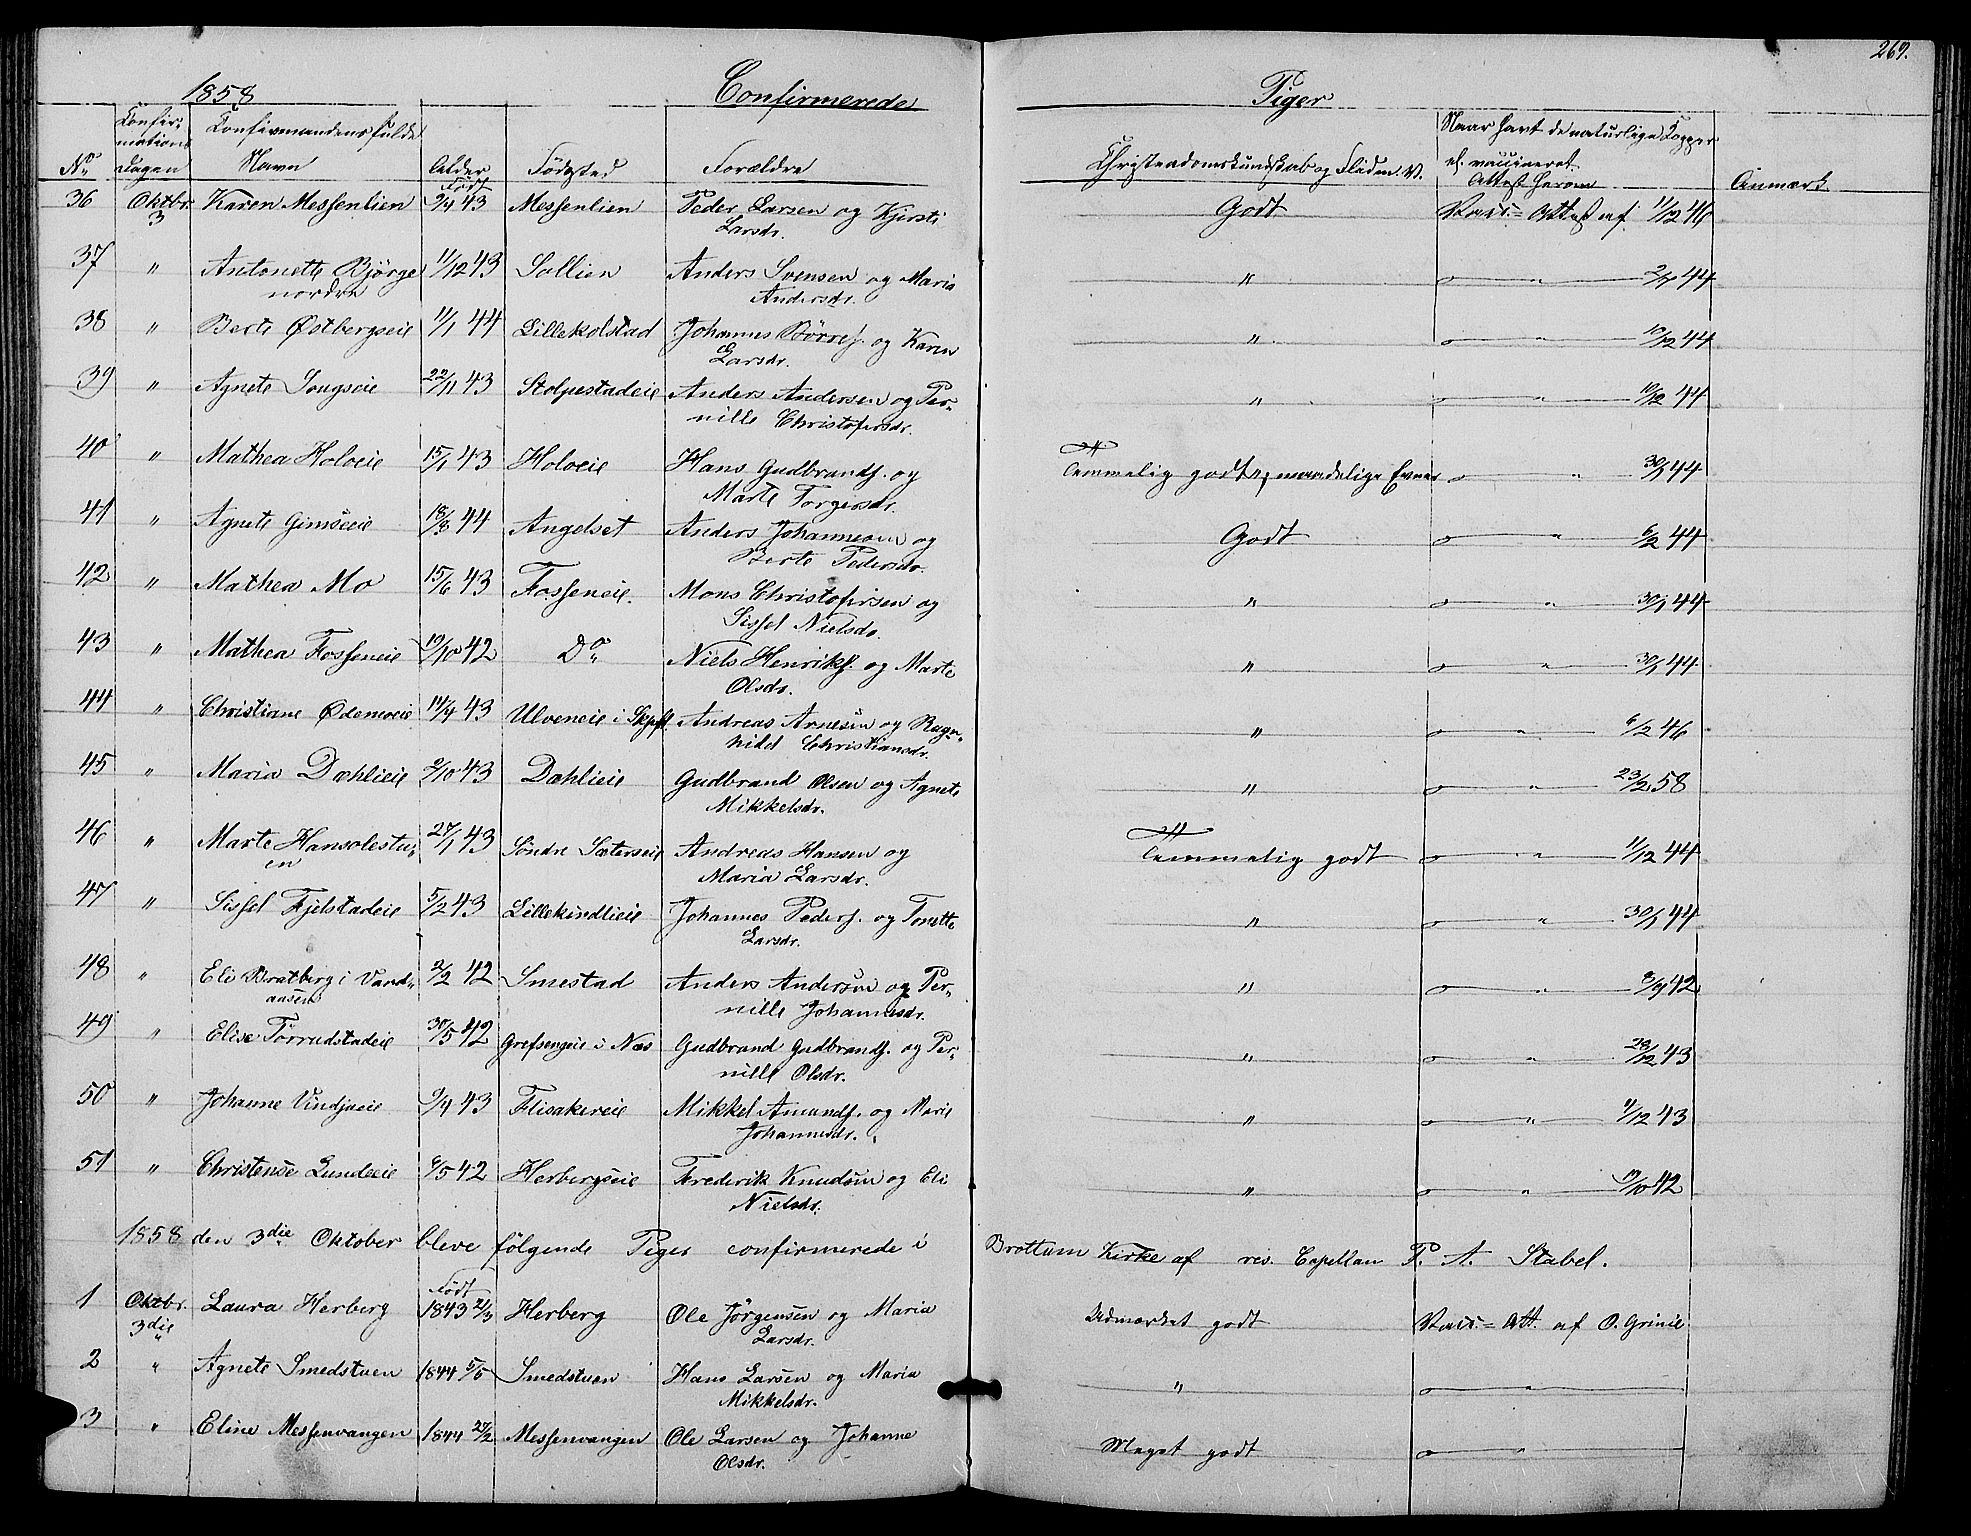 267.
1858 Confirmerede Piger
No Confirmations Dagen Confirmandens fulde Navn Alder Fødested Forældre Christendomskundskab og Fliden.V. Naar havt de naturlige Kopper el. vaccineret. Attest herom Anmærk.
36 Oktbr. 3 Karen Messenlien Født 9/4 43 Messenlien Peder Larsen og Kjersti Larsdr. Godt Vacc.= Attest af 11/12 46
37 " Antonette Bjørge nordre 11/12 43 Sollien Anders Svensen og Maria Andersdr. " " 44
38 " Berte Østbergseie 11/1 44 Lillekolstad Johannes Børres. og Karen Larsdr. " " 10/12 44
39 " Agnete Sougseie 22/11 43 Stolpestadeie Anders Andersen og Pernille Christofersdr. " " 10/12 44
40 " Mathea Holoeie 15/1 43 Holoeie Hans Gudbrands. og Marte Torgersdr. Temmelig godt, maadelige Evner " 30/1 44
41 " Agnete Gimseeie 18/8 44 Angelset Anders Johannesen og Berte Pedersdr. Godt " 6/2 44
42 " Mathea Mo 15/6 43 Fosseneie. Mons Christofersen og Sissel Nielsdr. " " 30/1 44
43 " Mathea Fosseneie 19/10 42 Do Niels Henriks. og Marte Olsdr. " " 30/1 44
44 " Christiane Ødemoeie 14/4 43 Ulveneie i Andreas Arnesen og Ragnhild Christiansdr. " " 6/2 46
45 " Maria Dæhlieie 2/10 43 Dæhlieie Gudbrand Olsen og Agnete Mikkelsdr. " " 23/2 58
46 " Marte Hansolestuen 27/1 43 Søndre Sæterseie Andreas Hansen og Maria Larsdr. Temmelig godt " 11/12 44
47 " Sissel Fjelstadeie 5/2 43 Lillekindlieie Johannes Peders. og Tonette Larsdr. " " 30/1 44
48 " Eli Bratberg i Vandaasen 2/2 42 Smestad Anders Andersen og Pernille Johannesdr. " " 8/9 42
49 " Elise Tørrudstadeie 30/5 42 Grefsengeie i Næs Gudbrand Gudbrands. og Pernille Olsdr. " " 28/12 43
50 " Johanne Vindjueie 9/4 43 Flisakereie Mikkel Amunds. og Marie Johannesdr. " " 4/12 43
51 " Christense Lundeeie 8/5 42 Herbergseie Frederik Knudsen og Eli Nielsdr. " " 42
1858 den 3die Oktober bleve følgende Piger confirmerede i Brøttum Kirke af res. Capellan P. A. Stabel.
1 Oktbr. 3die Laura Herberg Født 1843 2/3 Herberg Ole Jørgensen og Maria Larsdr. Udmærket godt Vacc.= Att. af O. Grinie
2 " Agnete Smedstuen 1844 5/5 Smedstuen Hans Larsen og Maria Mikkelsdr. " "
3 " Eline Messenvangen 1844 27/2 Messenvangen Ole Larsen og Johanne Olsdr. Meget godt "